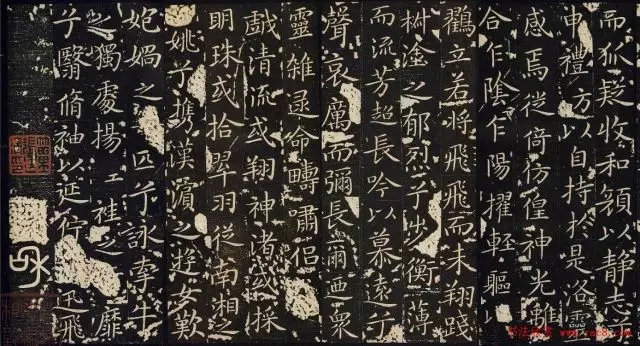 而狐疑收和顏以静志
申禮方以自持於是洛靈
感焉徙倚彷徨神光離
合乍陰乍陽擢輕軀以
鸖立若將飛飛而未翔踐
椒塗之郁烈兮步衡薄
而流芳超長吟以慕遠兮
聲哀厲而彌長爾迺衆
靈雜遝命疇嘯侶
戲清流或翔神渚或採
明珠或拾翠羽從南湘之
姚兮攜漢濵之遊女歎
妃媧之匹兮詠牽牛
之獨處揚袿之靡
兮翳脩袖以延佇迅飛